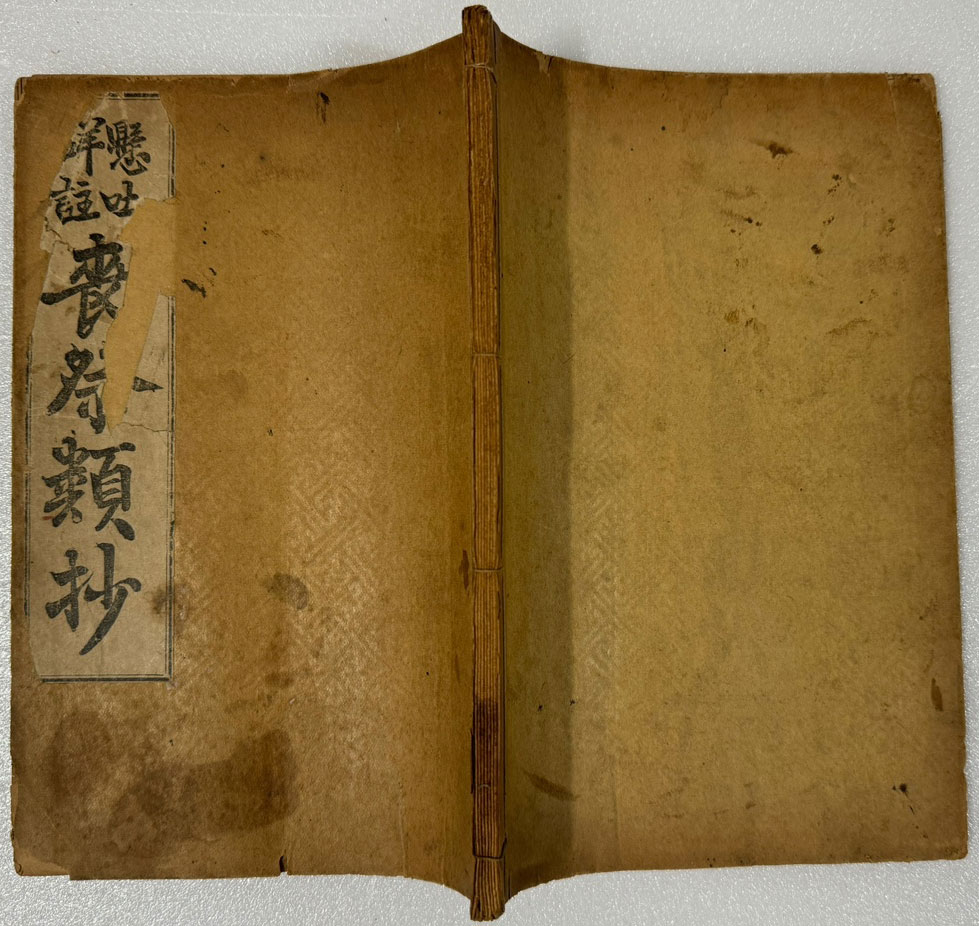 懸吐
詳註
喪祭類抄